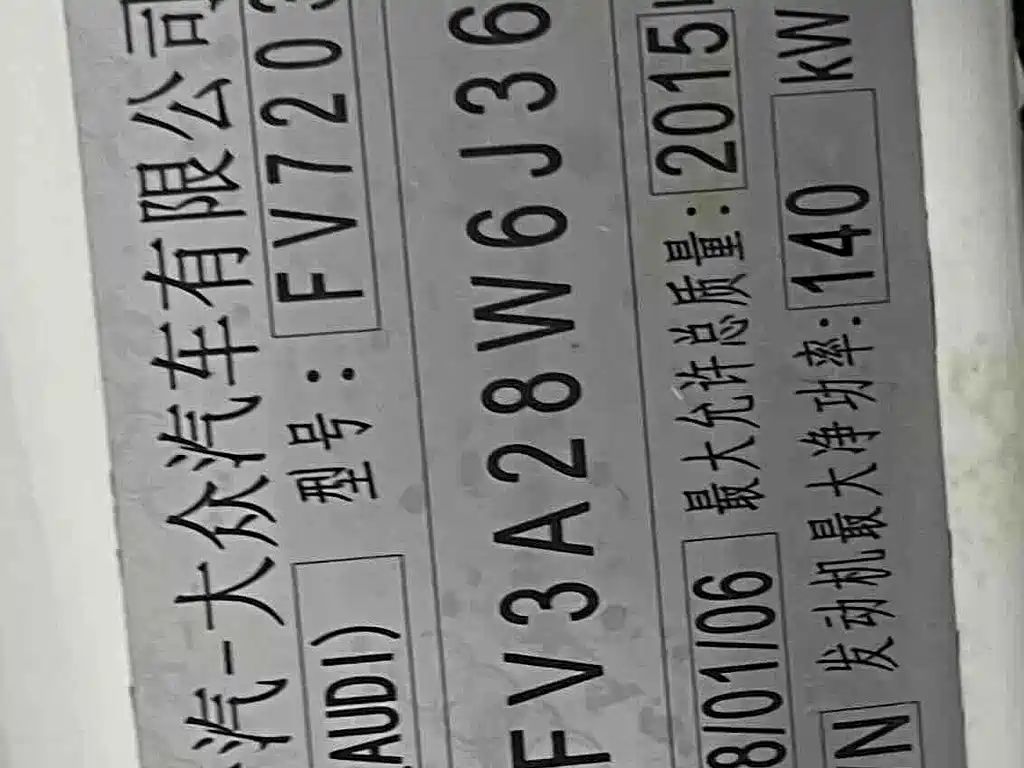 汽-大众汽车有限公司
AUDI) 型号: FV7203
FV3A28W6J36
8/01/06 最大允许总质量: 2015
N 发动机最大净功率: 140 kW